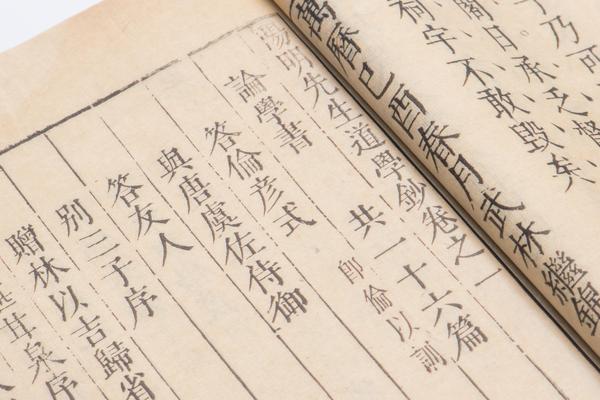 乃可
日承乏
祠宇不敢毀矣
萬曆己酉春月武林繼錦
陽明先生道學鈔卷之一
論學書 共一十六篇
答倫彥式 即倫以訓
與唐虞佐侍御
答友人
別三子序
贈林以吉歸省
甘泉序